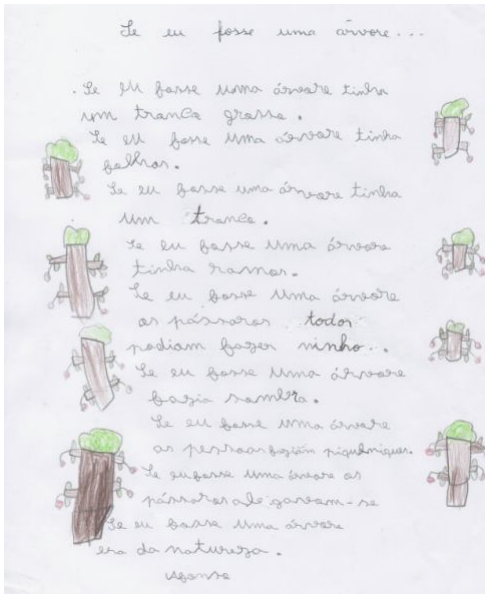 Se eu fosse uma árvore...
Se eu fosse uma árvore tinha
um tronco grosso.
Se eu fosse uma árvore tinha
folhas.
Se eu fosse uma árvore tinha
um tronco.
Se eu fosse uma árvore
tinha ramos.
Se eu fosse uma árvore
os pássaros todos
podiam fazer ninho...
Se eu fosse uma árvore
fazia sombra.
Se eu fosse uma árvore
as pessoas faziam piqueniques.
Se eu fosse uma árvore os
pássaros alegravam-se
Se eu fosse uma árvore
era da natureza.
Afonso